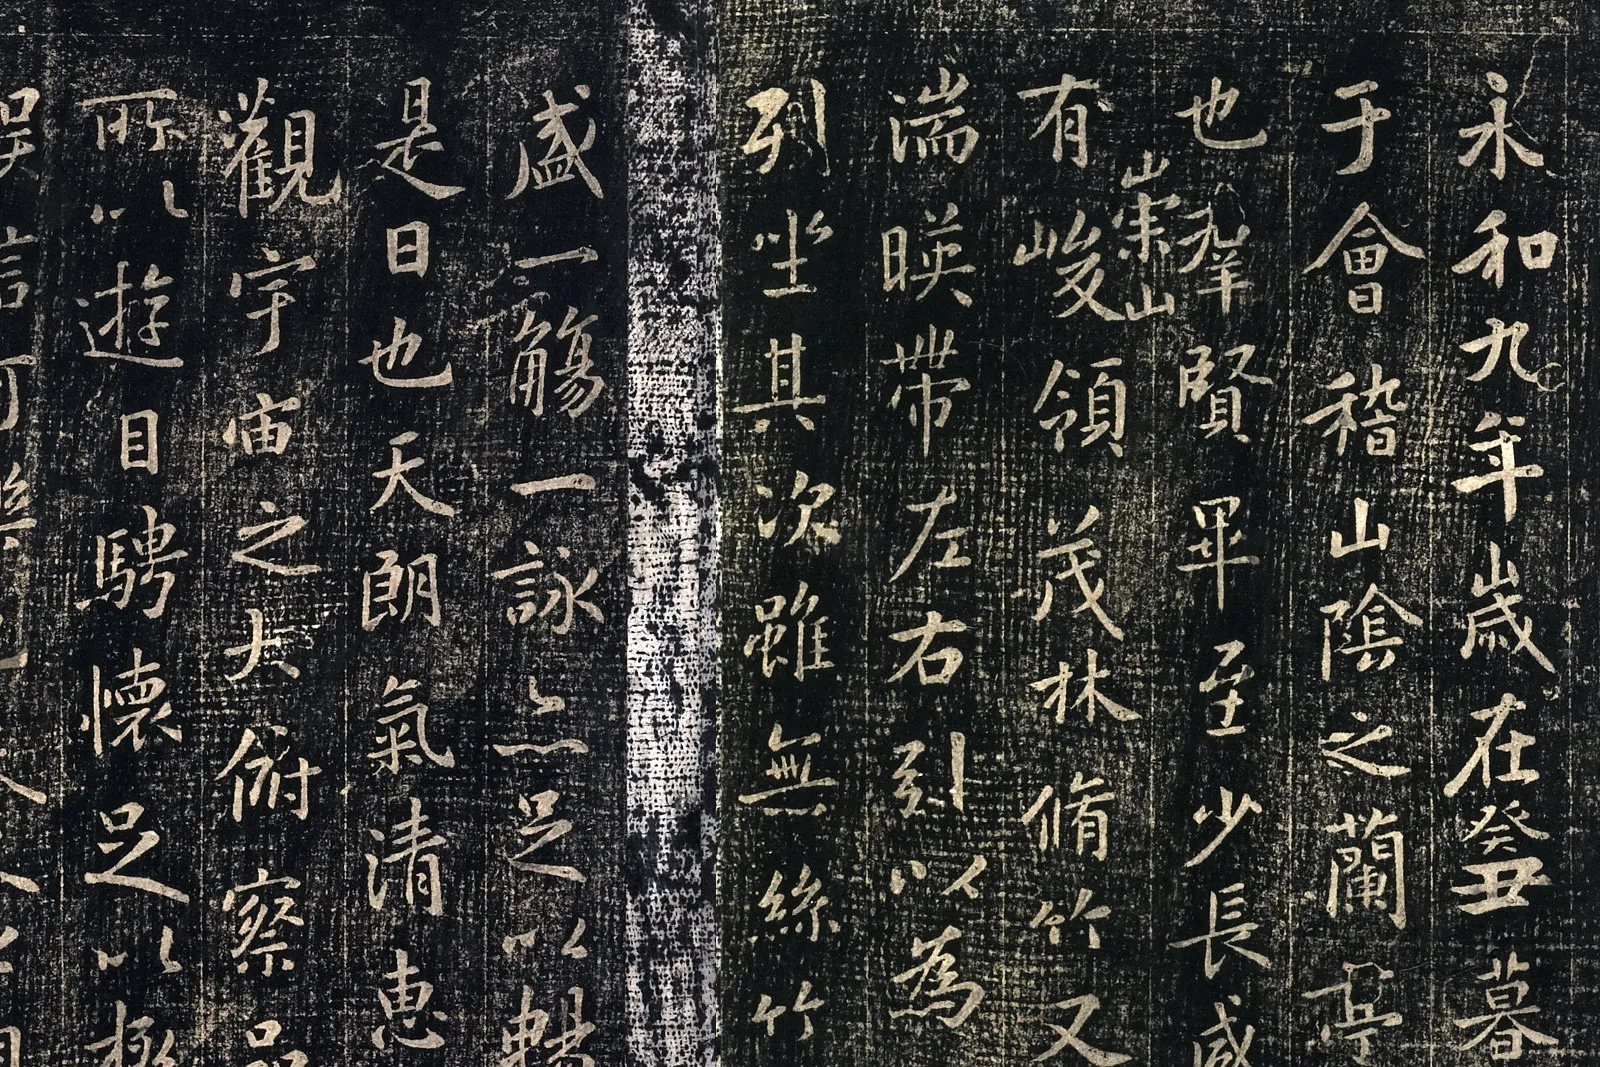 永和九年歲在癸丑暮
于會稽山陰之蘭亭
也羣賢畢至少長咸
有崇山峻領茂林脩竹又
湍暎帶左右引以為
列坐其次雖無絲竹
盛一觴一詠亦足以暢
是日也天朗氣清惠
觀宇宙之大俯察品
所以遊目騁懷足以極
娛信可樂也夫人之相